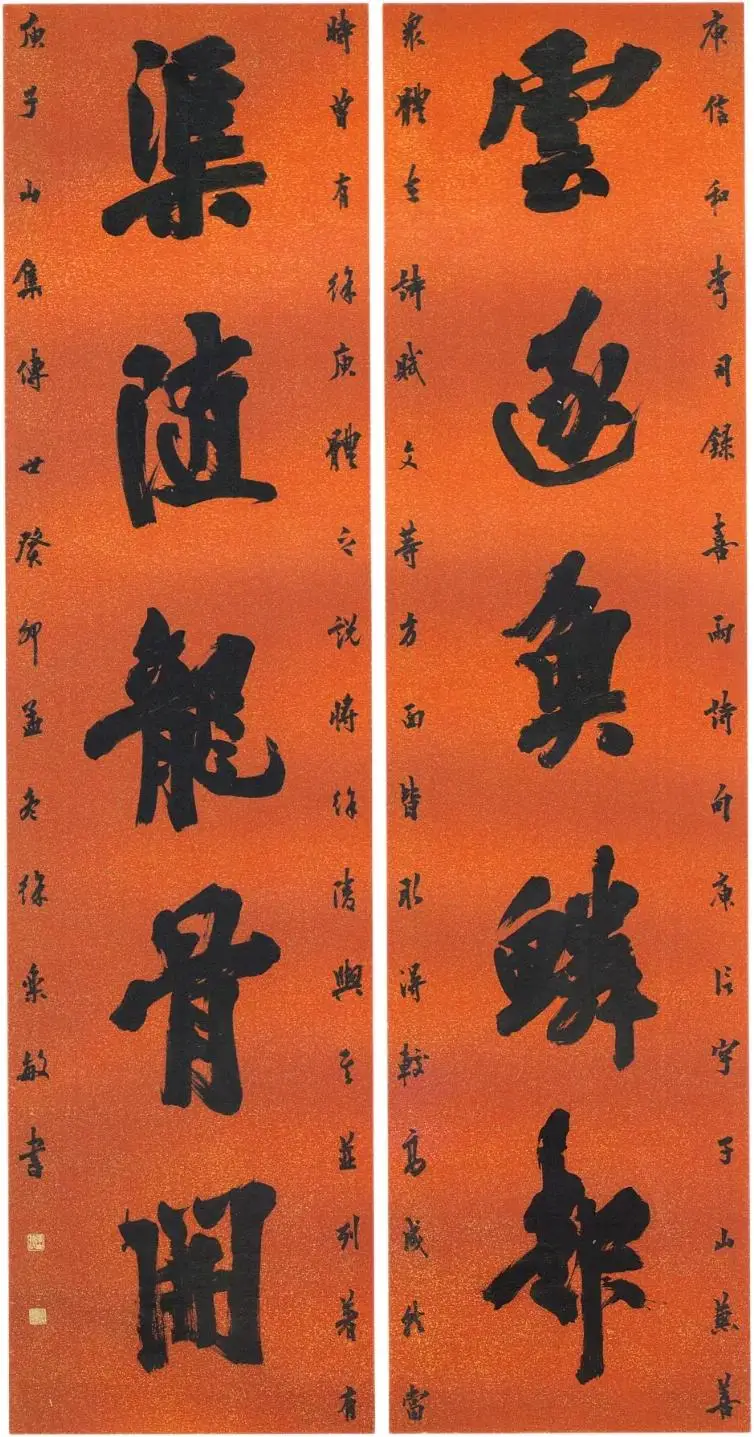 庾信和李司錄喜雨詩句庾信字子山兼善
雲逐魚鱗起
衆體在詩賦文等方面皆取得較高成就當
時曾有徐庾體之説將徐陵與其並列著有
渠随龍骨開
庾子山集傳世癸卯孟冬徐樂敏書